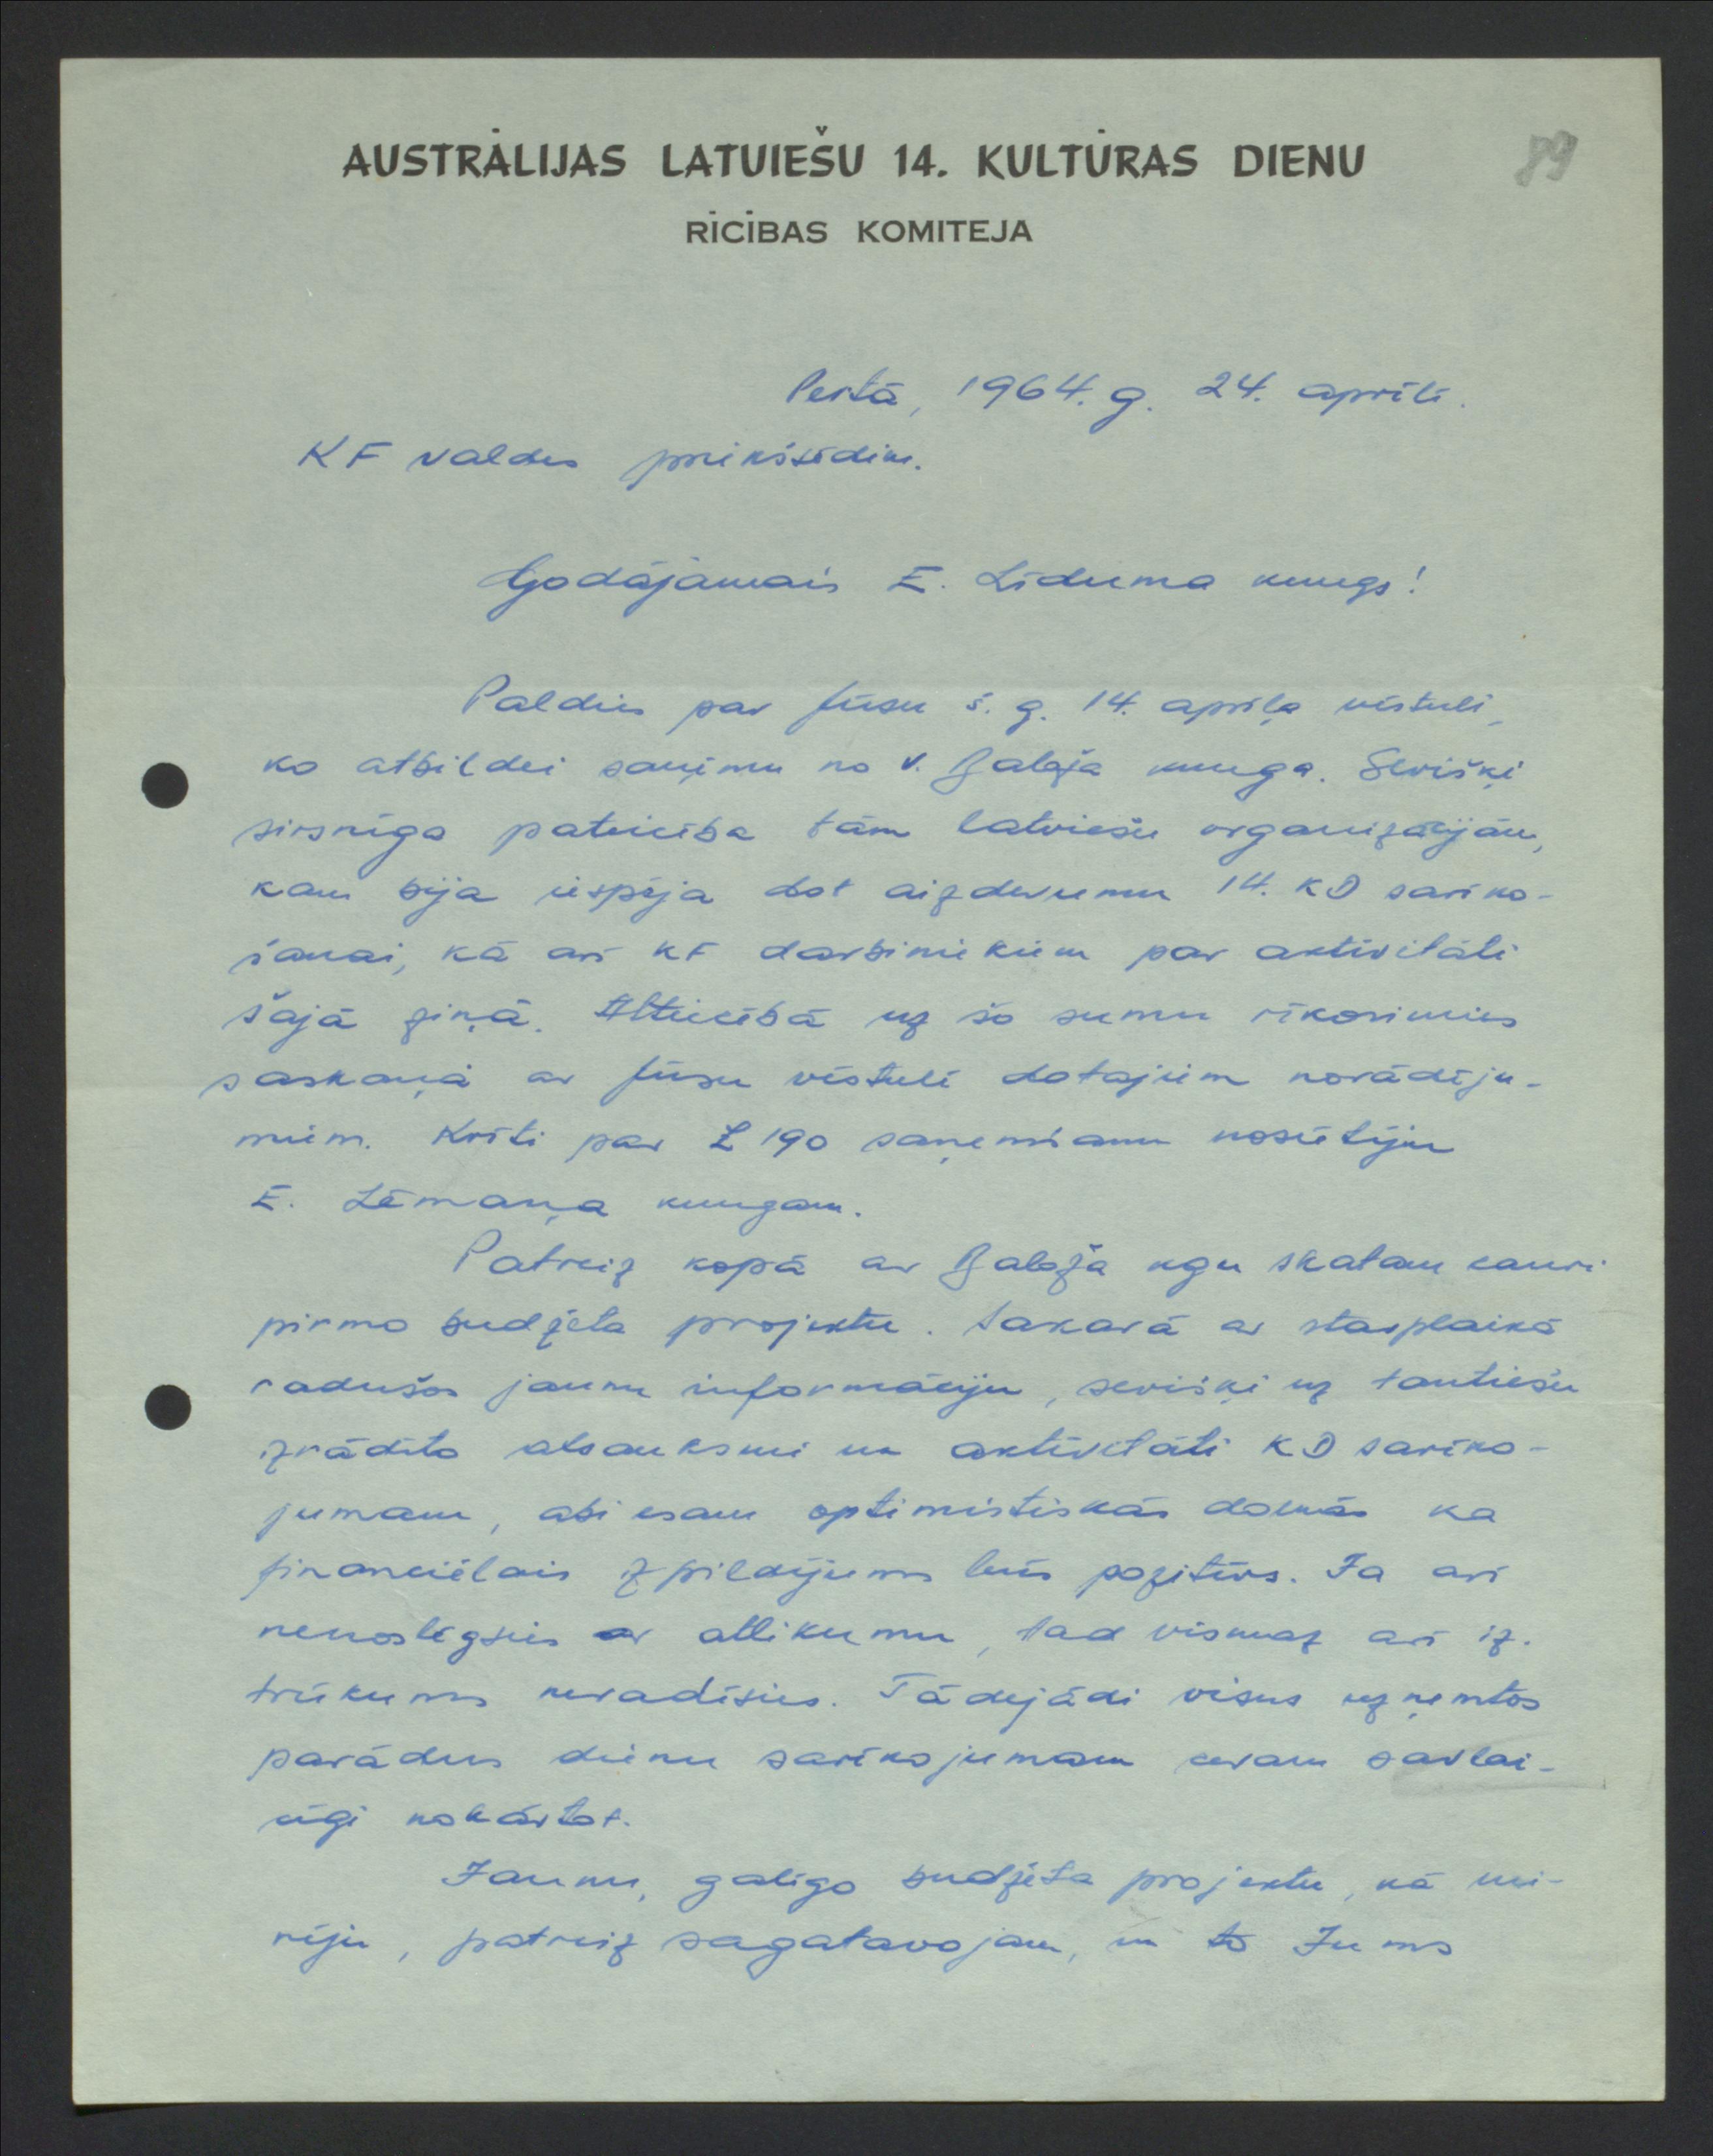 AUSTRĀLIJAS LATVIEŠU 14. KULTŪRAS DIENU
89
RĪCĪBAS KOMITEJA
Pertā, 1964. g. 24. aprīlī.
KF valdes priekšsēdim.
Godājamais E. Līduma kungs!
Paldies par Jūsu š. g. 14. aprīļa vēstuli,
ko atbildei saņēmu no v. Baloža kunga. Sevišķi
sirsnīga pateicība tām latviešu organizācijām,
kam bija iespēja dot aizdevumu 14. KD sarīko-
šanai, kā arī KF darbiniekiem par aktivitāti
šajā ziņā. Attiecībā uz šo summu rīkosimies
saskaņā ar Jūsu vēstulē dotajiem norādīju-
miem. Kvīti par £ 190 saņemšanu nosūtīju
E. Lēmaņa kungam.
Patreiz kopā ar Baloža kgu skatam cauri
pirmo budžeta projektu. Sakarā ar starplaikā
radušos jaunu informāciju, sevišķi uz tautiešu
izrādīto atsauksmi un aktivitāti KD sarīko-
jumam, abi esam optimistiskās domās ka
financiēlais izpildījums būs pozitīvs. Ja arī
nenoslēgsies ar atlikumu, tad vismaz arī iz-
trūkums neradīsies. Tādejādi visus uzņemtos
parādus dienu sarīkojumam ceram savlai-
cīgi nokārtot.
Jaunu, galīgo budžeta projektu, kā mi-
nēju, patreiz sagatavojam, un to Jums